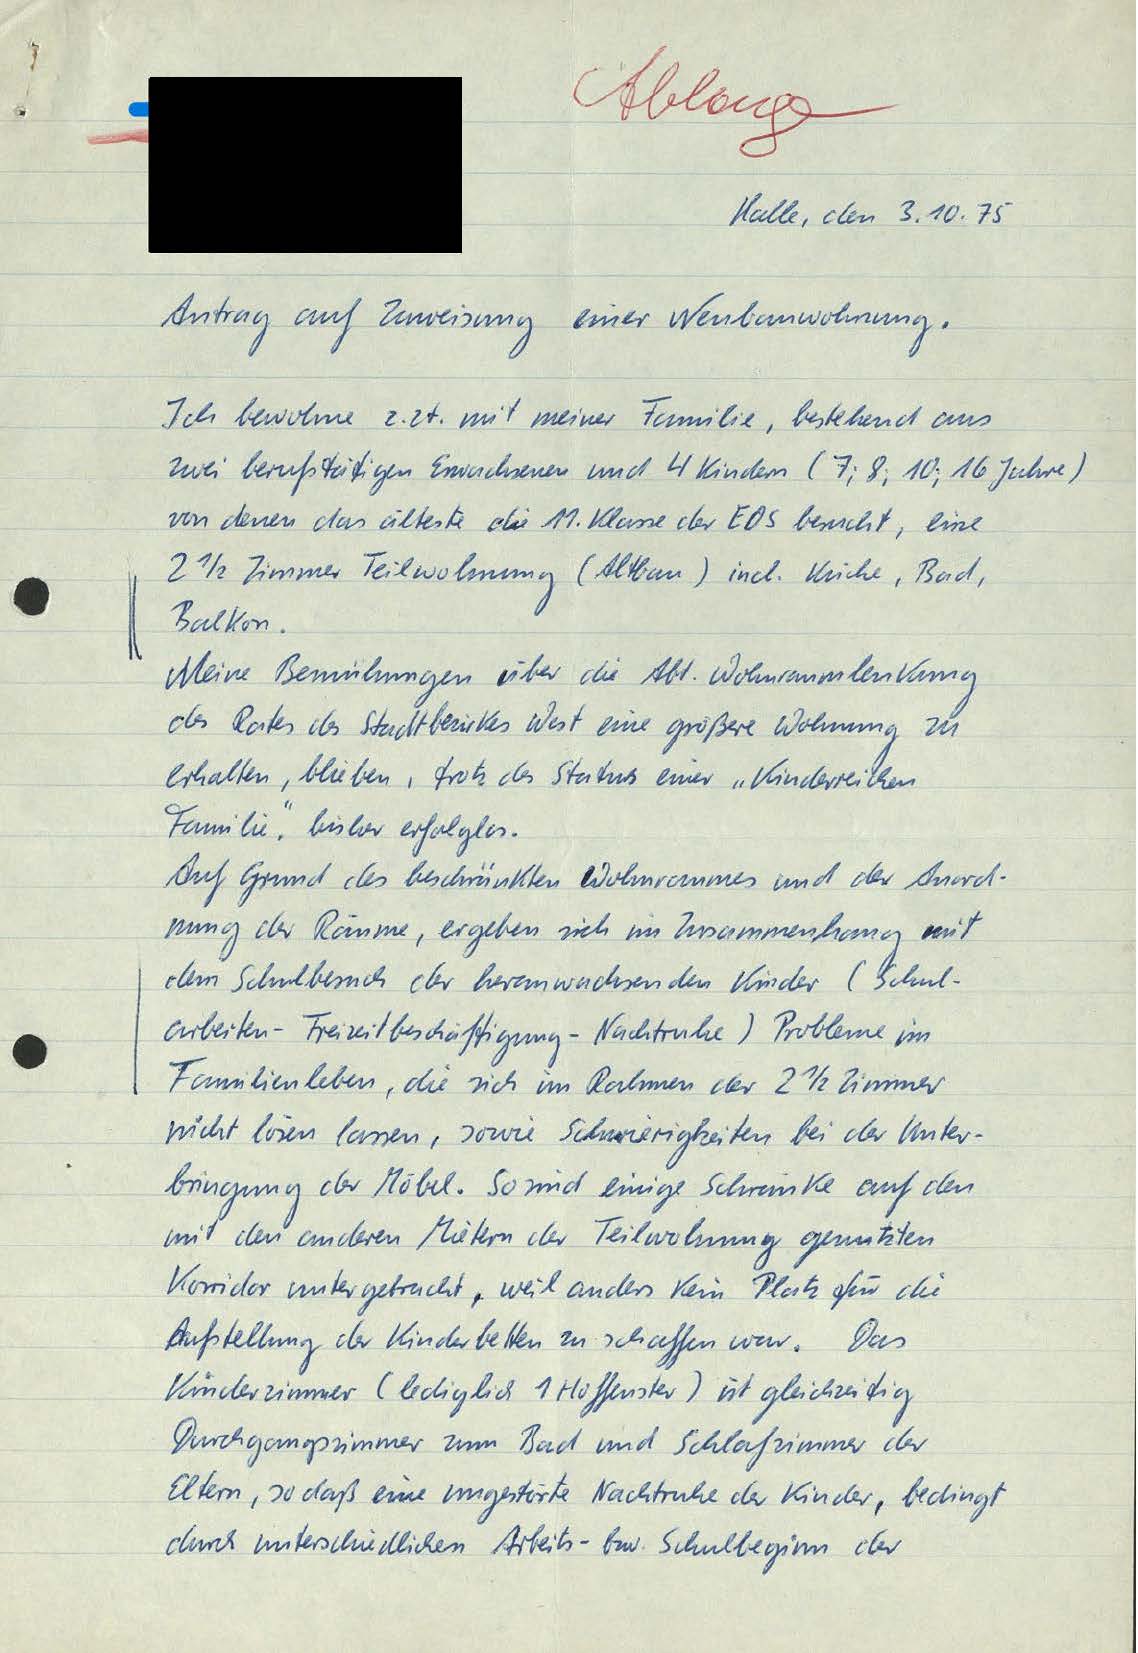 Ablage
Halle, den 3.10.75
Antrag auf Zuweisung einer Neubauwohnung.
Ich bewohne z.Zt. mit meiner Familie, bestehend aus
zwei berufstätigen Erwachsenen und 4 Kindern (7; 8; 10; 16 Jahre)
von denen das älteste die 11. Klasse der EOS besucht, eine
2 1/2 Zimmer Teilwohnung (Altbau) incl. Küche, Bad,
Balkon.
Meine Bemühungen über die Abt. Wohnraumlenkung
des Rates des Stadtbezirkes West eine größere Wohnung zu
erhalten, blieben, trotz des Status einer „Kinderreichen
Familie", bisher erfolglos.
Auf Grund des beschränkten Wohnraumes und der Anord-
nung der Räume, ergeben sich im Zusammenhang mit
dem Schulbesuch der heranwachsenden Kinder (Schul-
arbeiten- Freizeitbeschäftigung- Nachtruhe) Probleme im
Familienleben, die sich im Rahmen der 2 1/2 Zimmer
nicht lösen lassen, sowie Schwierigkeiten bei der Unter-
bringung der Möbel. So sind einige Schränke auf den
mit den anderen Mietern der Teilwohnung genutzten
Korridor untergebracht, weil anders kein Platz für die
Aufstellung der Kinderbetten zu schaffen war. Das
Kinderzimmer (lediglich 1 Hoffenster) ist gleichzeitig
Durchgangszimmer zum Bad und Schlafzimmer der
Eltern, so daß eine ungestörte Nachtruhe der Kinder, bedingt
durch unterschiedlichen Arbeits- bzw. Schulbeginn der